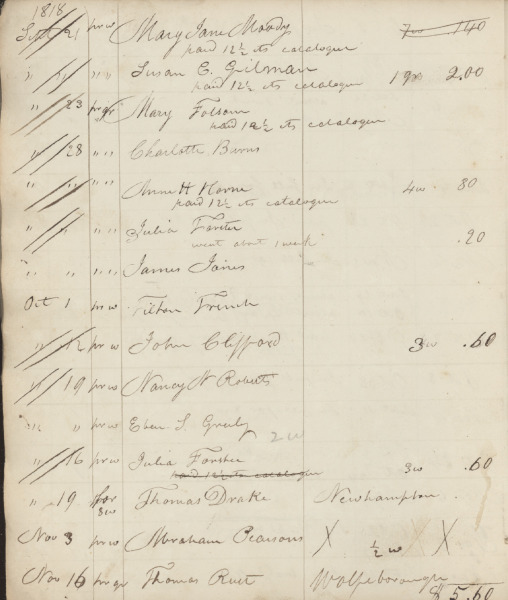 1818
Sept 21 pr w Mary Jane Moody 7w 140
paid 12 1/2 cts catalogue
" " " " Susan C. Gilman 19w 2.00
paid 12 1/2 cts catalogue
" 23 pr qr Mary Folsom
paid 12 1/2 cts catalogue
" 28 " " Charlotte Burns
" " " " Anne H Horne 4w . 80
paid 12 1/2 cts catalogue
" " " " Julia Forster .20
went about 1 week
" " " " James James
Oct 1 pr w Tilton French
" 12 pr w John Clifford 3w .60
" 19 pr w Nancy N Roberts
" " pr w Eben S. Greely 2w
" 16 pr w Julia Forster 3w .60
paid 12 1/2 cts catalogue
" 19 for 3w Thomas Drake Newhampton .
Nov 3 pr w Abraham Pearsons X 1/2 w X X
Nov 16 pr qr Thomas Rust Wolfeborough
$ 5.60